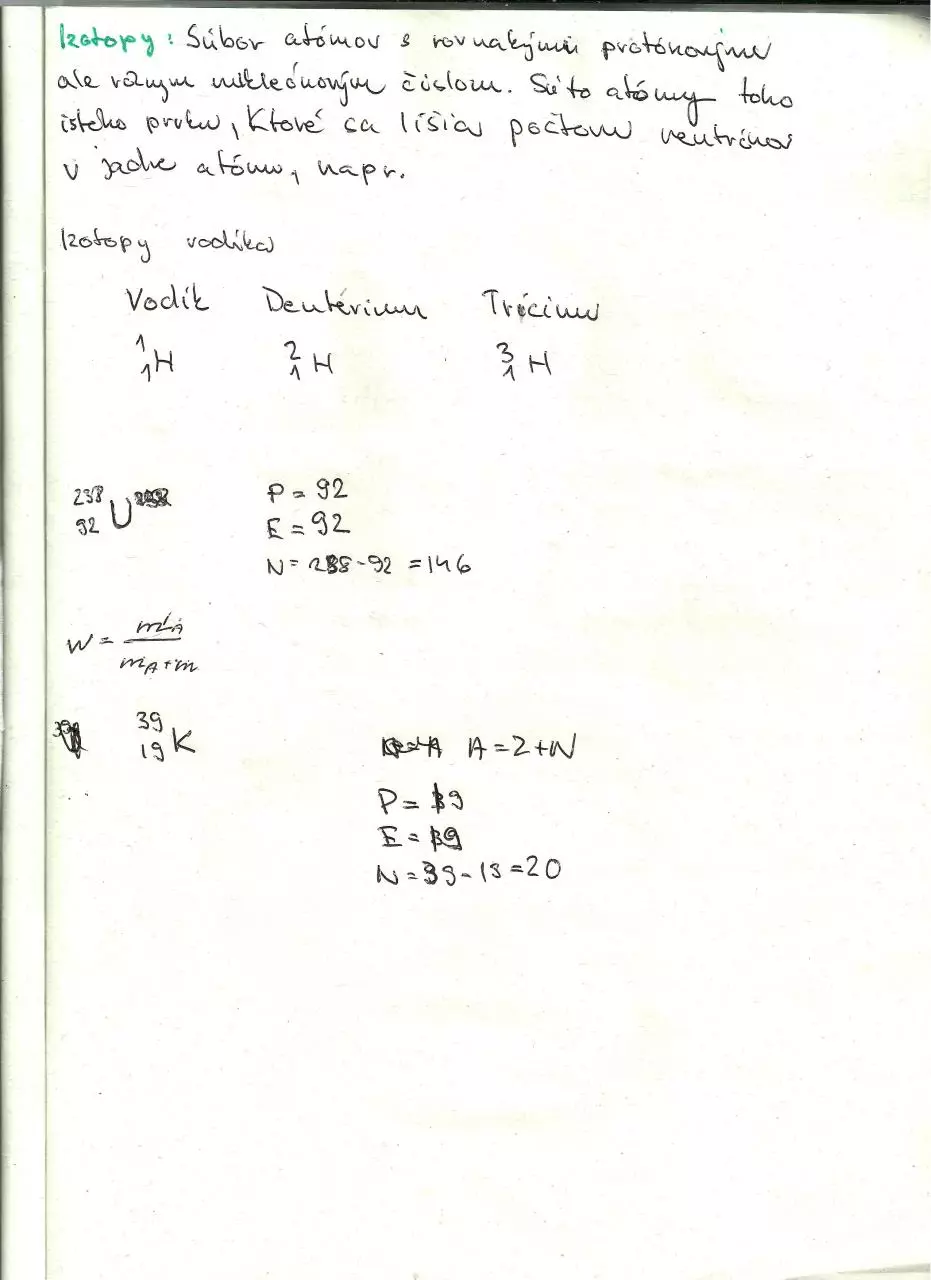 Izotopy: Súbor atómov s rovnakými protónovým
ale rôznym nukleónovým číslom. Sú to atómy toho
istého prvku, Ktoré sa líšia počtom neutrónov
v jadre atómu, napr.
Izotopy vodíka
Vodík Deutérium Trícium
¹₁H ²₁H ³₁H
²³⁸₉₂U P = 92
E = 92
N = 238-92 = 146
W = mA / mA + m
³⁹₁₉K A = Z + N
P = 19
E = 19
N = 39 - 19 = 20